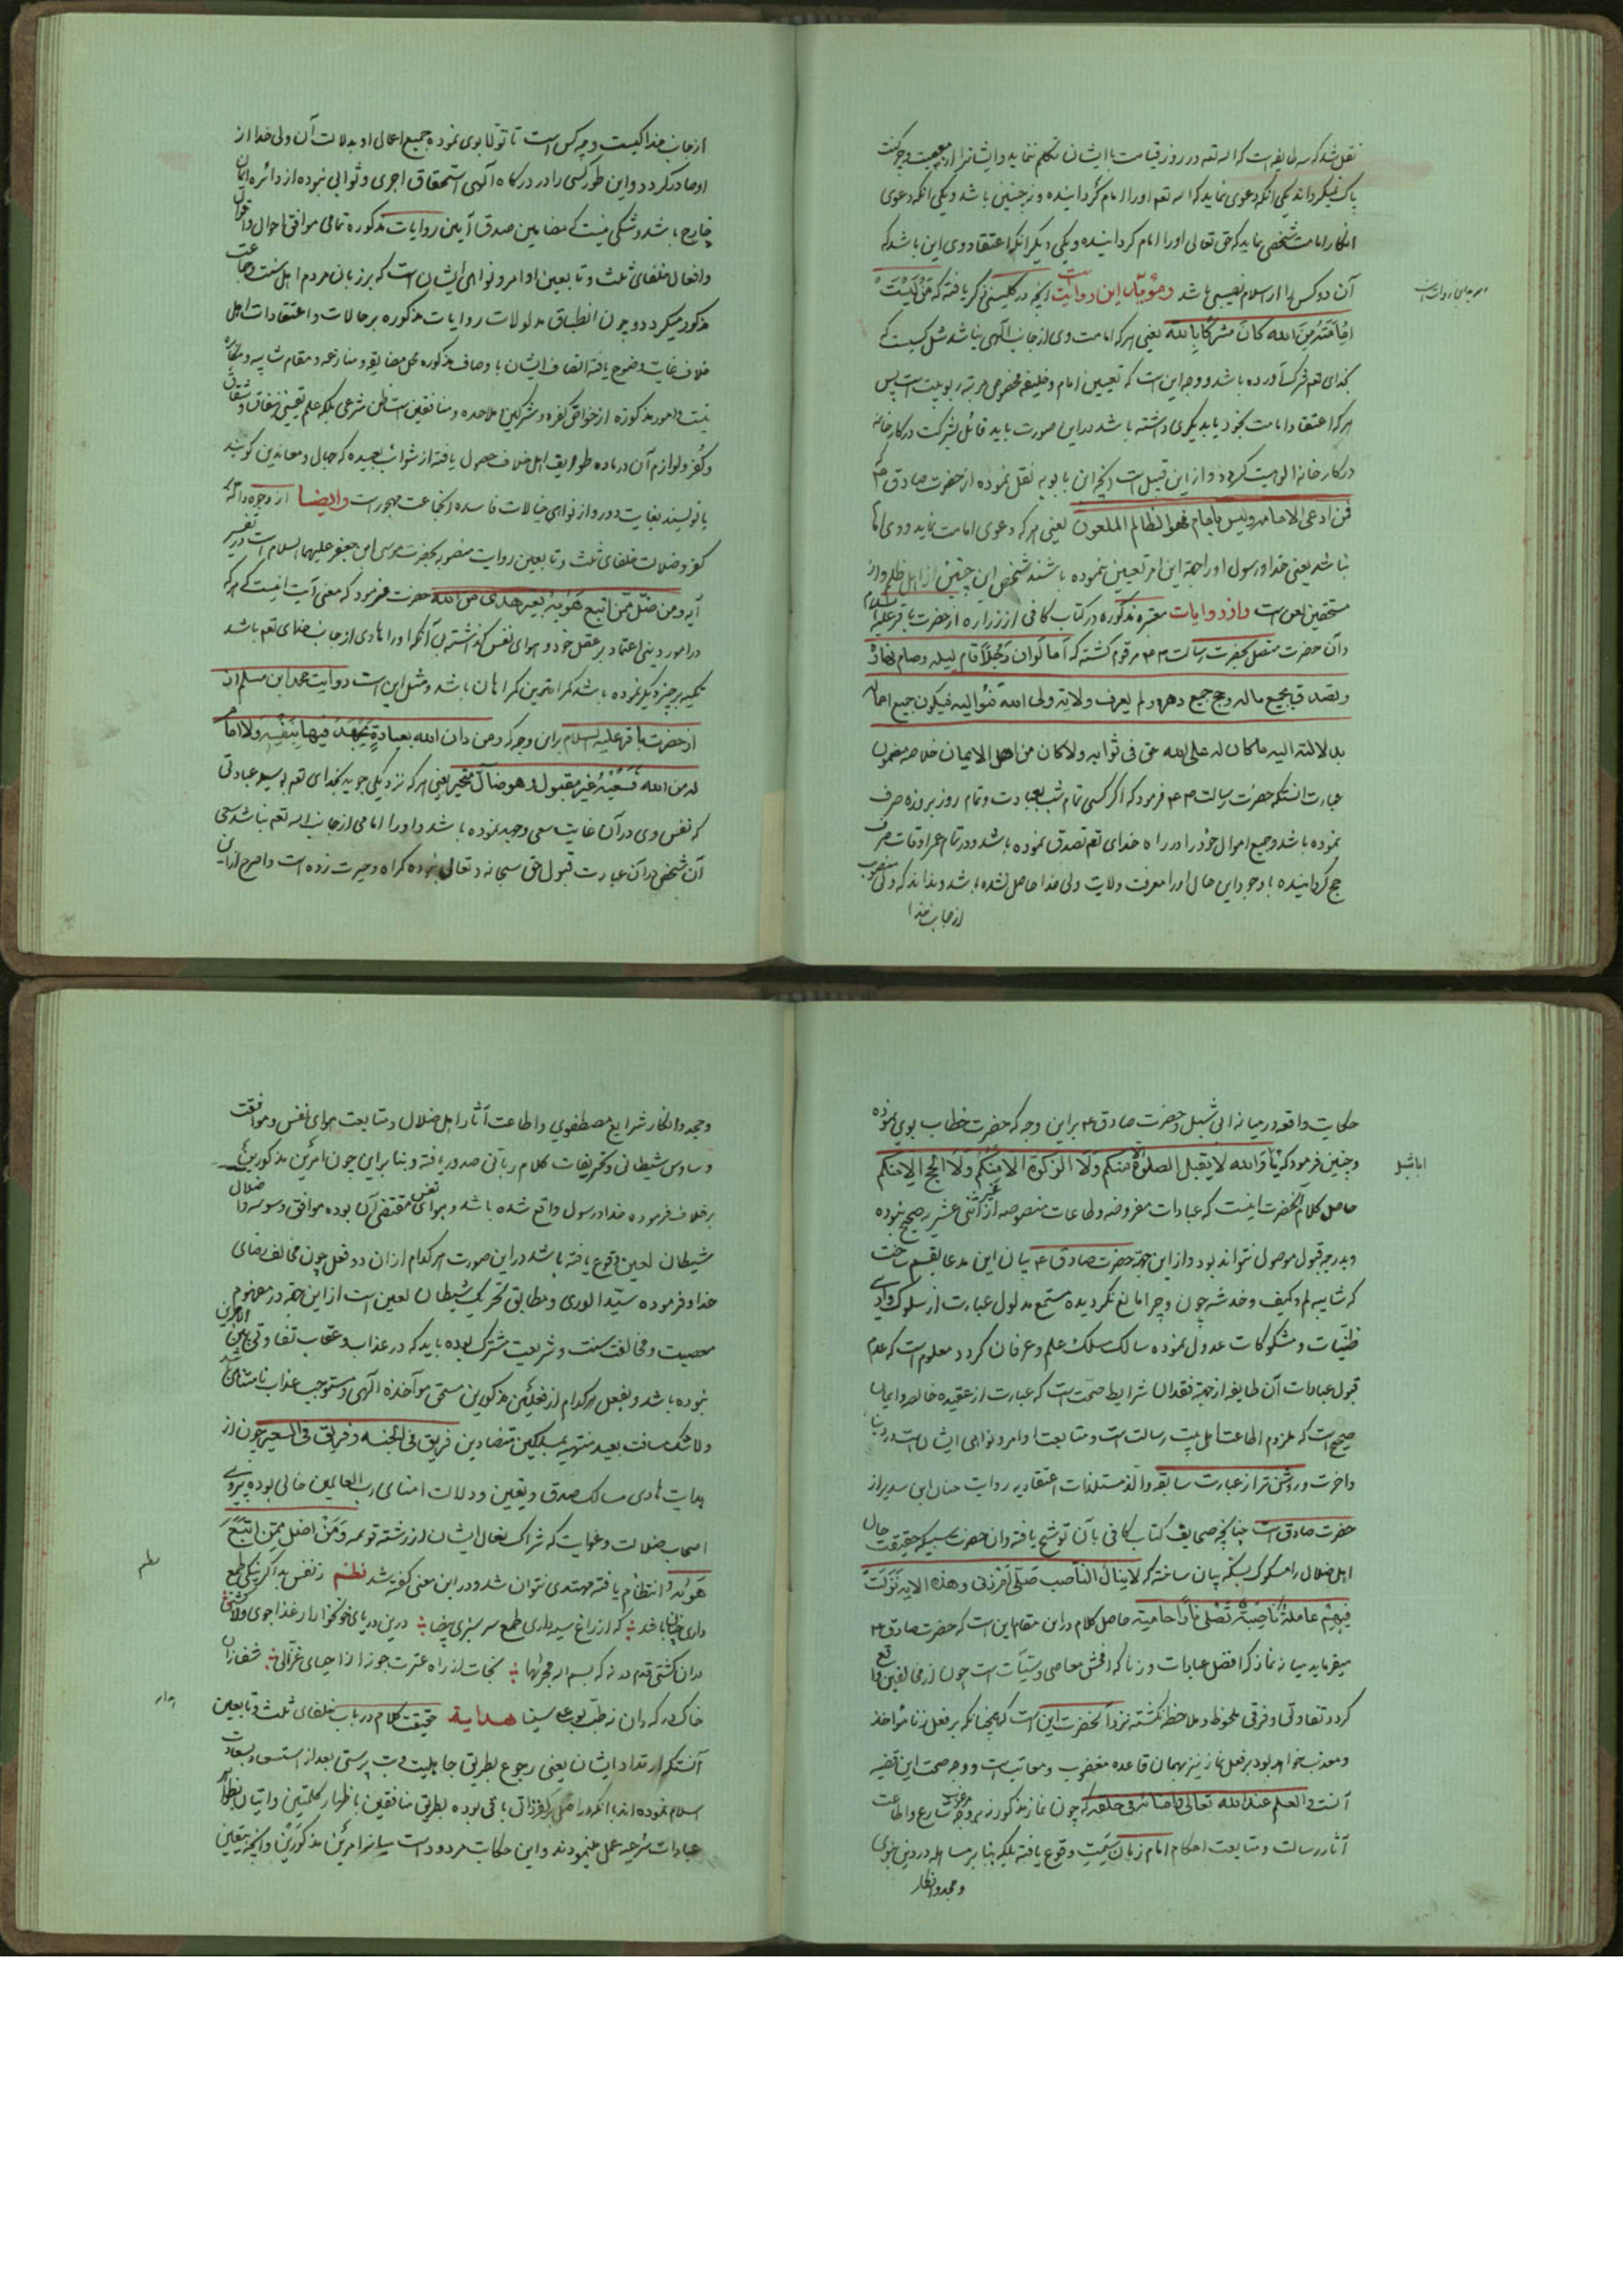 نقل شد که سه طایفه است که اله تعه در روز قیامت با ایشان تکلم ننماید و ایشانرا از
پاک نمیکرداند یکی انکه دعوی نماید که اله تعه اورا امام گردانیده و نه چنین باشد و یکی انکه دعوی
انکار امامت شخصی نماید که حق تعالی اورا امام کردانیده و یکی دیگر انکه اعتقاد وی این باشد که
آن دو کس را از اسلام نصیبی باشد و مؤید این روایت است انچه در کلینی ذکر یافته که من لیست
امامته من الله کان مشرکا بالله یعنی هر که امامت وی از جانب الهی نباشد مثل کسیست که
بخدای تعه شرک آورده باشد و وجه این است که تعیین امام و خلیفه مخصوص مرتبه ربوبیت است پس
هر که اعتقاد امامت بخود یا بدیکری داشته باشد در این صورت باید قائل بشرکت در کارخانه
در کارخانه الوهیت کردد و از این قبیل است انچه ابن بابویه نقل نموده از حضرت صادق ع
فمن ادعی الامامه و لیس بامام فهو الظالم الملعون یعنی هر که دعوی امامت نماید و وی امام
نباشد یعنی خدا و رسول اورا جهة این امر تعیین ننموده باشند شخص این چنین از اهل ظلم و از
مستحقین لعن است و از روایات معتبره مذکوره در کتاب کافی از زراره از حضرت باقر علیه السلام
و آن حضرت متصل بحضرت رسالت ص مرقوم کشته که اما لو ان رجلا قام لیله و صام نهاره
و تصدق بجمیع ماله و حج جمیع دهره و لم یعرف ولایة ولی الله فیوالیه فیکون جمیع اعماله
بدلالته الیه ما کان له علی الله حق فی ثوابه و لا کان من اهل الایمان خلاصه مضمون
عبارت انستکه حضرت رسالت ص فرمود که اگر کسی تمام شب بعبادت و تمام روز بروزه صرف
نموده باشد و جمیع اموال خود را در راه خدای تعه تصدق نموده باشد و در تمام عمر اوقات صرف
حج کردانیده با وجود این حال اورا معرفت ولایت ولی خدا حاصل نشده باشد و نداند که ولی منصوب
از جانب خدا
از جانب خدا کیست و چه کس است تا تولا بوی نموده جمیع اعمال او بدلالت آن ولی خدا از
او صادر کردد و این طور کسی را در درگاه الهی استحقاق اجری و ثوابی نبوده از دائره ایمان
خارج باشد و شکی نیست که مضامین صدق آیین روایات مذکوره تمامی موافق احوال و اقوال
و افعال خلفای ثلث و تابعین اوامر و نواهی ایشان است که بر زبان مردم اهل سنت و جماعت
مذکور میکردد و چون انطباق مدلولات روایات مذکوره بر حالات و اعتقادات اهل
خلاف غایت وضوح یافته اتصاف ایشان باوصاف مذکوره محل مضایقه و منازعه و مقام شایبه و مکابره
نیست و امور مذکوره از خواص کفره و مشرکین و ملاحده و منافقین است ظن شرعی بلکه علم یقینی بنفاق و شقاق
و کفر و لوازم آن در ماده طوایف اهل خلاف حصول یافته از شوائب بعیده که جهال و معاندین گویند
یا نویسند بغایت دور و از نواهی خیالات فاسده انجماعت مهجور است و ایضا از وجوه داله
کفر و ضلالت خلفای ثلث و تابعین روایت منصور بحضرت موسی ابن جعفر علیهما السلام است در تفسیر
آیه و من اضل ممن اتبع هویه بغیر هدی من الله حضرت فرمود که معنی آیت اینست که هر که
در امور دینی اعتماد بر عقل خود و هوای نفس گذاشته بی آنکه اورا هادی از جانب خدای تعه باشد
تکیه بر چیز دیگر نموده باشد گمراهترین گمراهان باشد و مثل این است روایت محمد ابن مسلم از
از حضرت باقر علیه السلام براین وجه که و من دان الله بعبادة یجهد فیها بنفسه و لا امام
له من الله فسعیه غیر مقبول و هو ضال متحیر یعنی هر که نزدیکی جوید بخدای تعه بوسیله عبادتی
که نفس وی در آن غایت سعی و جهد نموده باشد و اورا امامی از جانب اله تعه نباشد سعی
آن شخص در آن عبادت قبول حق سبحانه و تعالی نبوده گمراه و حیرت زده است و اصرح از این
حکایت واقعه در میانه ابی شبل و حضرت صادق ع براین وجه که حضرت خطاب بوی نموده
و چنین فرمود که یا والله لا یقبل الصلوة الا منکم ولا الزکوة الا منکم ولا الحج الا منکم
حاصل کلام آنحضرت اینست که عبادات مفروضه و طاعات منصوصه از غیر اثنی عشریه صحیح نبوده
و بدرجه قبول موصول نتواند بود و از این جهة حضرت صادق ع بیان این مدعا بقسم ساخت
که شایبه لم و کیف و خدشه چون و چرا مانع نکردیده مستمع مدلول عبارت از سلوک وادی
ظنیات و مشکوکات عدول نموده سالک مسلک علم و عرفان کردد معلوم است که عدم
قبول عبادات آن طایفه از جهة فقدان شرایط صحت است که عبارت از عقیده خالصه و ایمان
صحیح است که ملزوم اطاعت اهل بیت رسالت است و متابعت اوامر و نواهی ایشان است در دنیا
و اخرت و روشن تر از عبارت سابقه و الذ مستلذات اعتقادیه روایت حنان ابن سدیر از
حضرت صادق است چنانچه صحایف کتاب کافی بآن توشیح یافته و ان حضرت سبیکه حقیقت حال
اهل ضلال را مسکوک بسکه بیان ساخته که لا یبال الناصب صلی ام زنی و هذه الایه نزلت
فیهم عاملة ناصبة تصلی نارا حامیة حاصل کلام در این مقام این است که حضرت صادق ع
میفرماید میانه نماز که افضل عبادات و زنا که افحش معاصی و سیئات است چون از مخالفین واقع
کردد تفاوتی و فرقی ملحوظ و ملاحظ نکشته نزد آنحضرت این است که همچنانکه بر فعل زنا مؤاخذ
و معذب خواهد بود بر فعل نماز نیز بهمان قاعده مغضوب و معاتب است و وجه صحت این قضیه
آنست و العلم عند الله تعالی و امنائه فی خلقه که چون نماز مذکور نه بر وجه شارع و اطاعت
آثار رسالت و متابعت احکام امام زمان وقوع یافته بلکه بنا بر مساهله در دین نبوی
و جحد و انکار
و جحد و انکار شرایع مصطفوی و اطاعت آثار اهل ضلال و متابعت هوای نفس و موافقت
وساوس شیطانی و تحریفات کلام ربانی صدور یافته و بنا براین چون امرین مذکورین
برخلاف فرموده خدا و رسول واقع شده باشد و بهوای نفس مقتضی آن بوده موافق وسوسه و اضلال
شیطان لعین وقوع یافته باشد در این صورت هر کدام از ان دو فعل چون مخالف رضای
خدا و فرموده سید الوری و مطابق تحریک شیطان لعین است از این جهة در مفهوم
معصیت و مخالفت سنت و شریعت مشترک بوده باید که در عذاب و عقاب تفاوتی بین الامرین
نبوده باشد و بفعل هر کدام از فعلین مذکورین مستحق مؤاخذه الهی و مستوجب عذاب نامتناهی شد
و لا شک مسافت بعید منتهیه بمسلکین متضادین فریق فی الجنه و فریق فی السعیر چون از
هدایت هادی مسالک صدق و یقین و دلالت امنای رب العالمین خالی بوده پیروی
اصحاب ضلالت و غوایت که شراک نعال ایشان از رشته تو بمه و من اضل ممن اتبع
هویه انتظام یافته مهتدی نتوان شد و در این معنی کفته شد نظم ز نفس بد اگر نیکی طمع
داری چنان باشد که از زاغ سیه داری طمع سر سبزی بیضا درین دریای خونخوار ار غذا جوی ولا کشتی
دران کشتی قدم در نه که بسم اله مجریها نجات از راه عترت جو نه از احیای غزالی شفا زان
خاک در که دان نه طب بوعلی سینا هدایة حقیقت کلام در باب خلفای ثلث و تابعین
آنستکه ارتداد ایشان یعنی رجوع بطریق جاهلیت و بت پرستی بعد از استسعاد بسعادت
اسلام نموده اند یا انکه در اصل کفر ذاتی باقی بوده بطریق منافقین باظهار کلمتین و اتیان بظاهر
عبادات شرعیه عمل مینمودند و این حکایت مردود است میانه امرین مذکورین و انچه بیقین